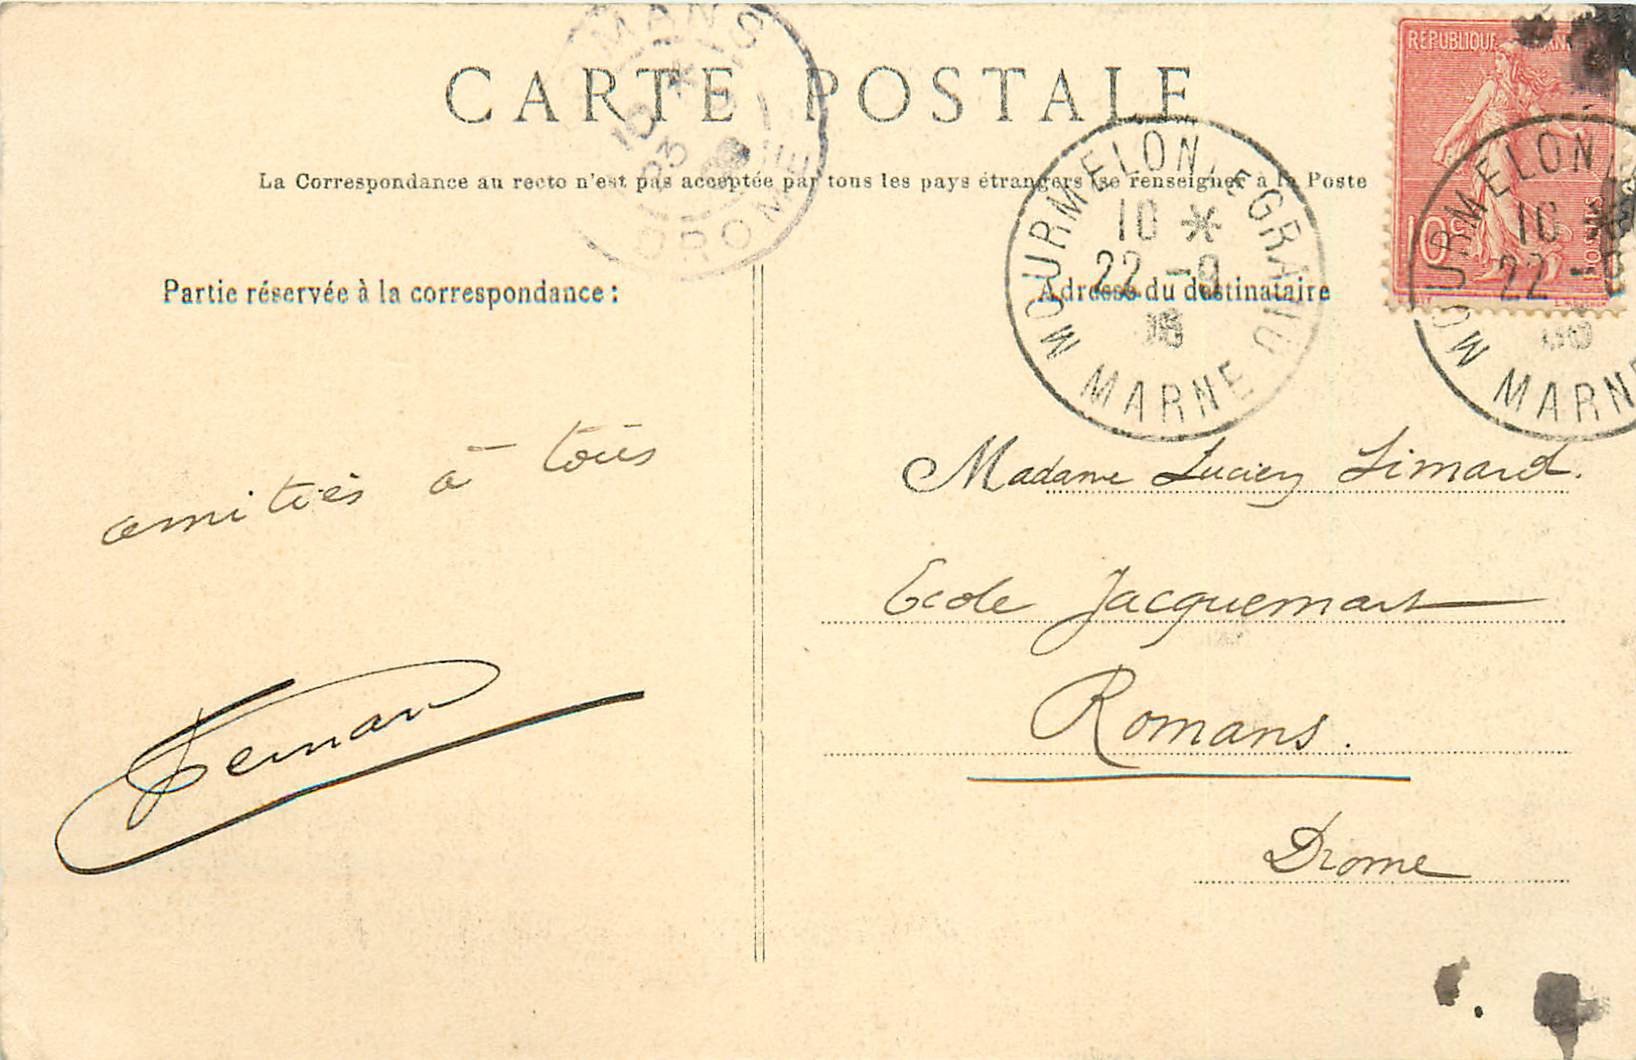 CARTE POSTALE
La Correspondance au recto n'est pas acceptée par tous les pays étrangers (se renseigner à la Poste
Partie réservée à la correspondance :
Adresse du destinataire
ROMANS
10 *
23
DROME
MOURMELON-LE-GRAND
10 *
22 -9
MARNE
RÉPUBLIQUE FRANÇAISE
10
POSTES
MOURMELON
10 *
22 -9
MARNE
amitiés à tous
Madame Lucien Simard.
Ecole Jacquemart
Romans.
Drome